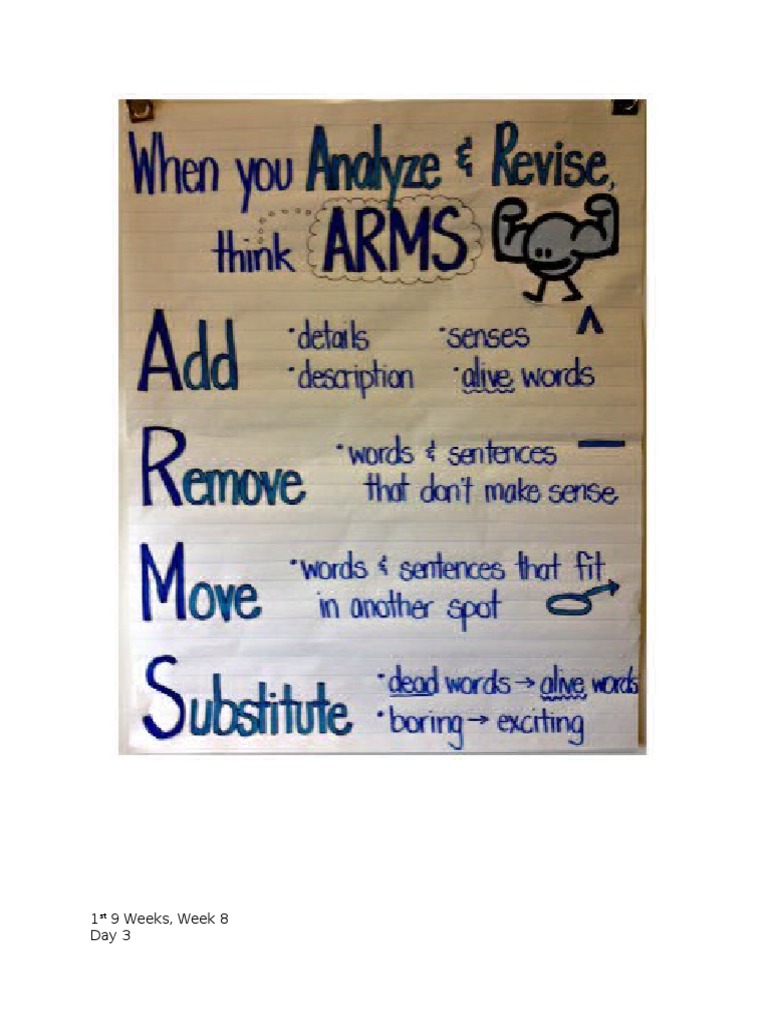 When you Analyze & Revise,
think ARMS
Add
·details ·senses
·description ·alive words
Remove
·words & sentences
that don't make sense
Move
·words & sentences that fit
in another spot
Substitute
·dead words → alive words
·boring → exciting
1st 9 Weeks, Week 8
Day 3